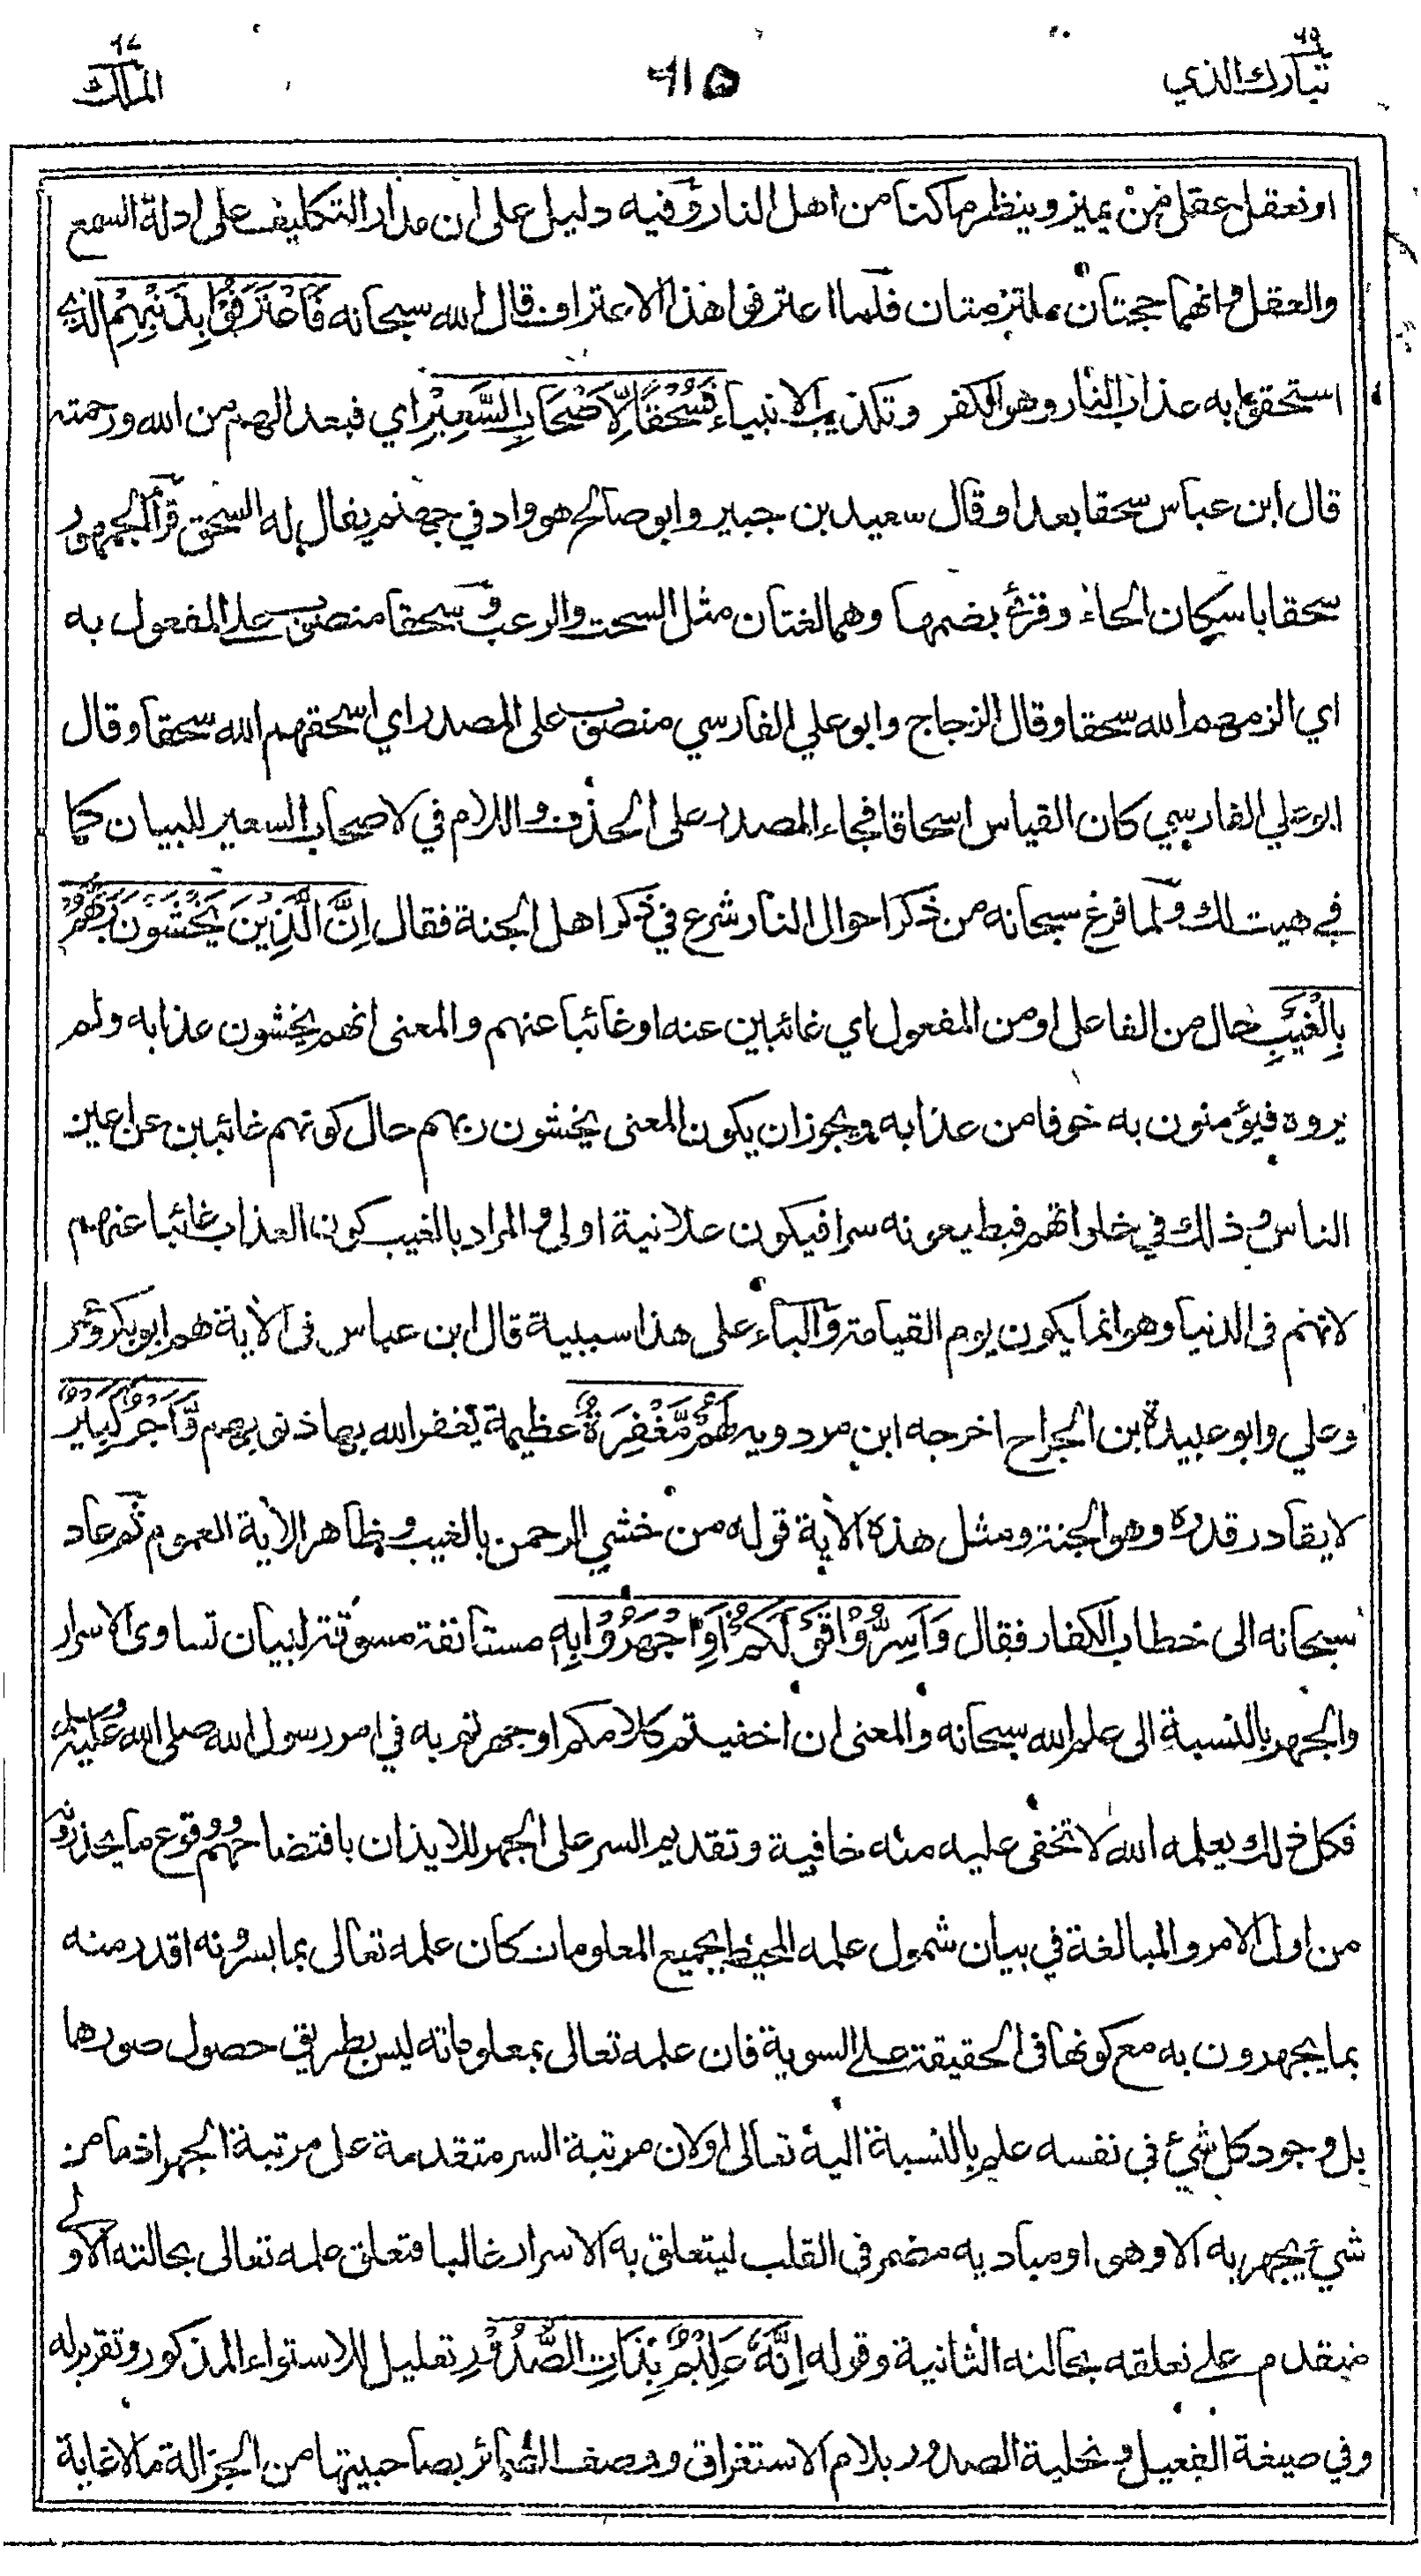 تبارك الذي ٢٩
٦١٥
الملك ٦٧
او نعقل عقل من يميز وينظر ما كنا من اهل النار وفيه دليل على ان مدار التكليف على ادلة السمع
والعقل وانهما حجتان ملتزمتان فلما اعترفوا هذا الاعتراف قال الله سبحانه فَاعْتَرَفُوْا بِذَنْبِهِمْ الذي
استحقوا به عذاب النار وهو الكفر وتكذيب الانبياء فَسُحْقًا لِّاَصْحَابِ السَّعِيْرِ اي فبعدا لهم من الله ورحمته
قال ابن عباس سحقا بعدا وقال سعيد بن جبير وابو صالح هو واد في جهنم يقال له السحق قرأ الجمهور
سحقا باسكان الحاء وقرئ بضمها وهما لغتان مثل السحت والرعب وسحقا منصوب على المفعول به
اي الزمهم الله سحقا وقال الزجاج وابو علي الفارسي منصوب على المصدر اي اسحقهم الله سحقا وقال
ابو علي الفارسي كان القياس اسحاقا فجاء المصدر على الحذف واللام في لاصحاب السعير للبيان كما
في هيت لك ولما فرغ سبحانه من ذكر احوال النار شرع في ذكر اهل الجنة فقال اِنَّ الَّذِيْنَ يَخْشَوْنَ رَبَّهُمْ
بِالْغَيْبِ حال من الفاعل او من المفعول اي غائبين عنه او غائبا عنهم والمعنى انهم يخشون عذابه ولم
يروه فيؤمنون به خوفا من عذابه ويجوز ان يكون المعنى يخشون ربهم حال كونهم غائبين عن اعين
الناس وذلك في خلواتهم فيطيعونه سرا فيكون علانية اولى والمراد بالغيب كون العذاب غائبا عنهم
لانهم في الدنيا وهو انما يكون يوم القيامة والباء على هذا سببية قال ابن عباس في الاية هم ابو بكر وعمر
وعلي وابو عبيدة بن الجراح اخرجه ابن مردويه لَهُمْ مَّغْفِرَةٌ عظيمة يغفر الله بها ذنوبهم وَّاَجْرٌ كَبِيْرٌ
لا يقادر قدره وهو الجنة ومثل هذه الاية قوله من خشي الرحمن بالغيب وظاهر الاية العموم ثم عاد
سبحانه الى خطاب الكفار فقال وَاَسِرُّوْا قَوْلَكُمْ اَوِ اجْهَرُوْا بِهٖ مستانفة مسوقة لبيان تساوى الاسرار
والجهر بالنسبة الى علم الله سبحانه والمعنى ان اخفيتم كلامكم او جهرتم به في امر رسول الله صلى الله عليه وسلم
فكل ذلك يعلمه الله لا تخفى عليه منه خافية وتقديم السر على الجهر للايذان بافتضاحهم ووقوع ما يحذرونه
من اول الامر والمبالغة في بيان شمول علمه المحيط بجميع المعلومات كان علمه تعالى بما يسرونه اقدم منه
بما يجهرون به مع كونها في الحقيقة على السوية فان علمه تعالى بمعلوماته ليس بطريق حصول صورها
بل وجود كل شيء في نفسه علم بالنسبة اليه تعالى او لان مرتبة السر متقدمة على مرتبة الجهر اذ ما من
شيء يجهر به الا وهو او مباديه مضمر في القلب ليتعلق به الاسرار غالبا فتعلق علمه تعالى بحالته الاولى
متقدم على تعلقه بحالته الثانية وقوله اِنَّهٗ عَلِيْمٌ بِذَاتِ الصُّدُوْرِ تعليل للاستواء المذكور وتقرير له
وفي صيغة الفعيل وتحلية الصدور بلام الاستغراق ووصف الضمائر بصاحبيتها من الجزالة ما لا غاية